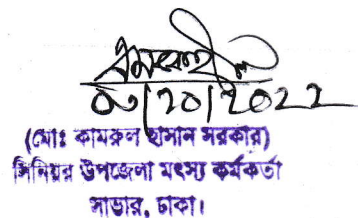 ০৩/১০/২০২২
(মোঃ কামরুল হাসান সরকার)
সিনিয়র উপজেলা মৎস্য কর্মকর্তা
সাভার, ঢাকা।